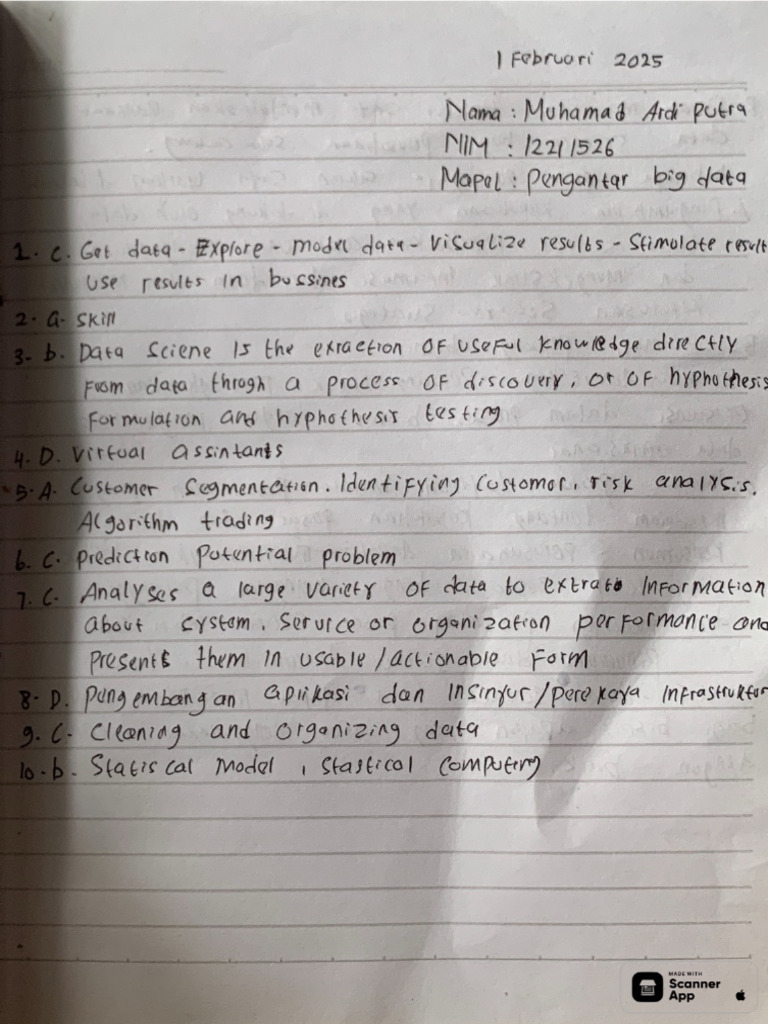 1 Februari 2025
Nama : Muhamad Ardi putra
NIM : 12211526
Mapel : pengantar big data
1. C. Get data - Explore - model data - Visualize results - Stimulate result
use results in bussines
2. a. skill
3. b. Data Sciene is the exraction of useful knowledge directly
from data throgh a process of discovery, or of hyphothesis
formulation and hyphothesis testing
4. D. Virtual assintants
5. A. Customer Segmentation. Identifying Customor, risk analysis,
Algorithm trading
6. C. prediction Potential problem
7. C. Analyses a large variety of data to extrato information
about system, service or organization performance and
presents them in usable / actionable form
8. D. pengembangan aplikasi dan insinyur / perekaya infrastruktur
9. C. Cleaning and organizing data
10. b. Statiscal Model, stastical computing
MADE WITH
Scanner
App